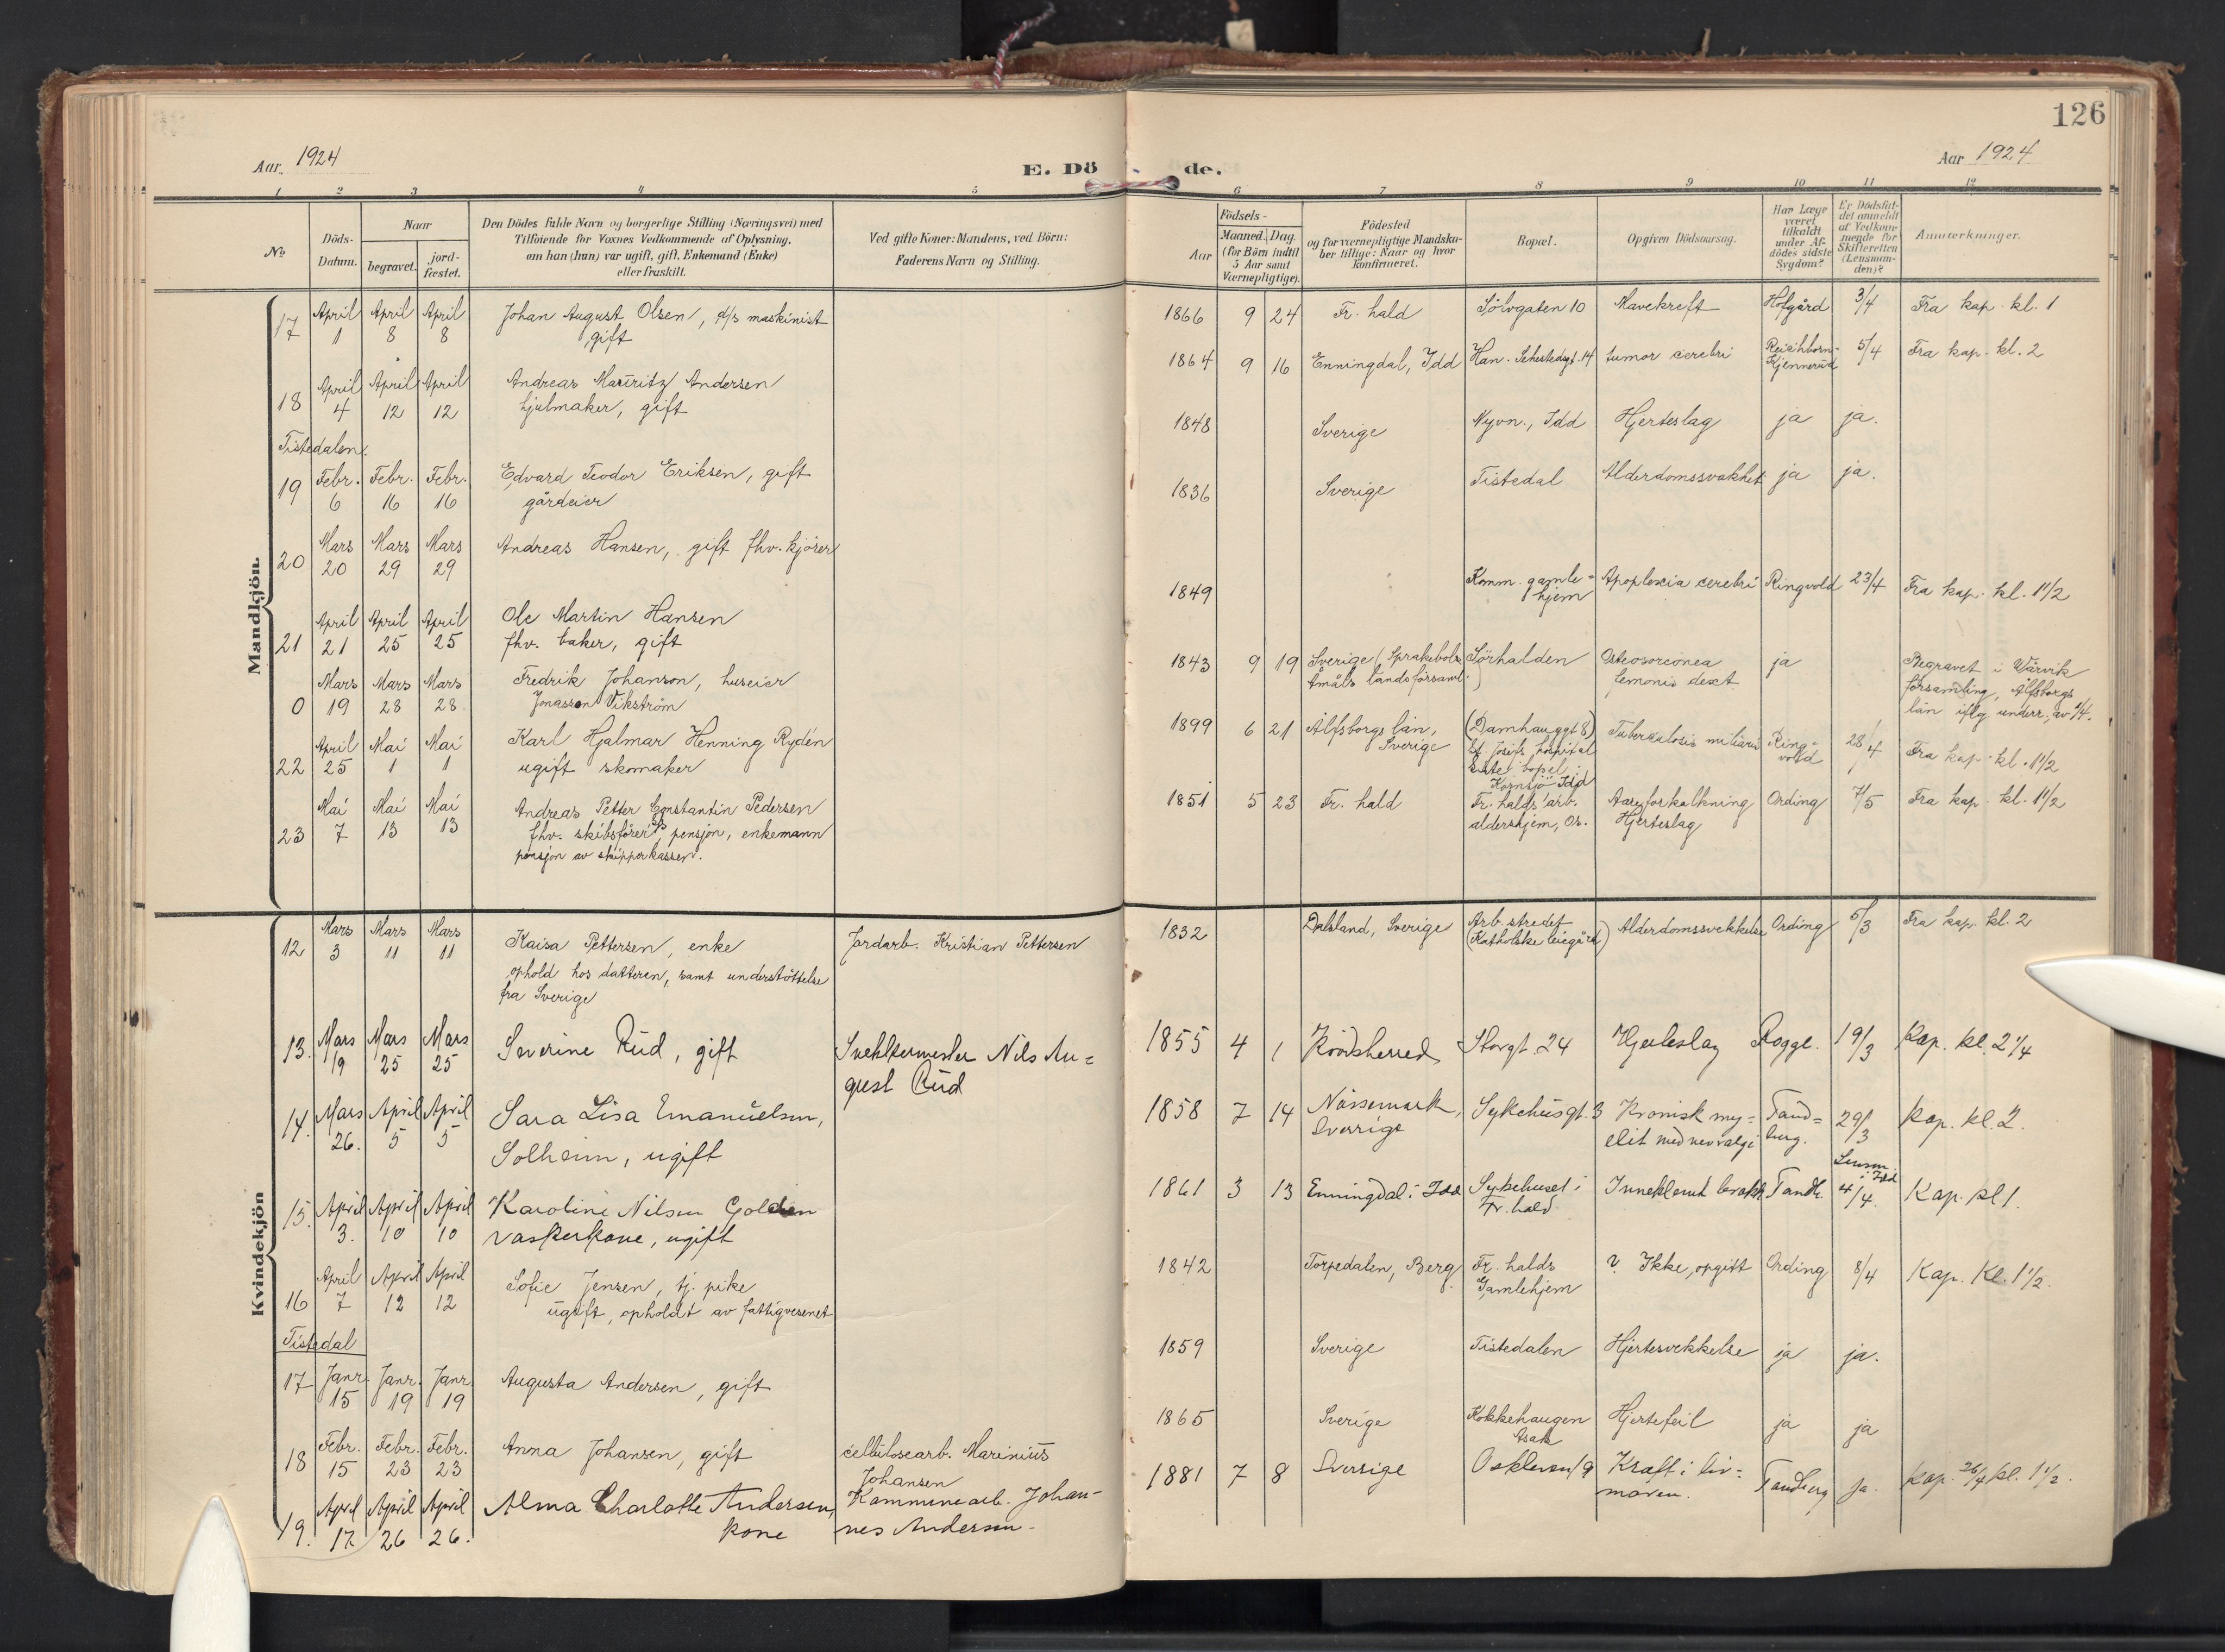 126
Aar 1924
E. Döde.
Aar 1924
1 2 3 4 5 6 7 8 9 10 11 12
No
Döds-
Datum.
Naar
begravet.
jord-
fæstet.
Den Dödes fulde Navn og borgerlige Stilling (Næringsvei) med
Tilföiende for Voxnes Vedkommende af Oplysning,
om han (hun) var ugift, gift, Enkemand (Enke)
eller fraskilt.
Ved gifte Koner: Mandens, ved Börn:
Faderens Navn og Stilling.
Födsels-
Aar
Maaned. Dag.
(for Börn indtil
5 Aar samt
Værnepligtige).
Födested
og for værnepligtige Mandska-
ber tillige: Naar og hvor
konfirmeret.
Bopæl.
Opgiven Dödsaarsag.
Har Læge
været
tilkaldt
under Af-
dödes sidste
Sygdom?
Er Dödsfal-
det anmeldt
af Vedkom-
mende for
Skifteretten
(Lensman-
den)?
Anmærkninger.
Mandkjön.
17 April 1 April 8 April 8 Johan August Olsen, d/s maskinist
gift
1866 9 24 Fr. hald Sölvgaten 10 Mavekreft Hofgård 3/4 Fra kap. kl. 1
18 April 4 April 12 April 12 Andreas Mauritz Andersen
hjulmaker, gift
1864 9 16 Enningdal, Idd Han. Sehestedsgt. 14 tumor cerebri Reichborn-
Kjennerud 5/4 Fra kap. kl. 2
Tistedalen.
19 Febr. 6 Febr. 16 Febr. 16 Edvard Teodor Eriksen, gift
gårdeier
1848 Sverige Nyvn., Idd Hjerteslag ja ja.
20 Mars 20 Mars 29 Mars 29 Andreas Hansen, gift fhv. kjörer
1836 Sverige Tistedal Alderdomssvakhet ja ja.
21 April 21 April 25 April 25 Ole Martin Hansen
fhv. baker, gift
1849 Komm. gamle-
hjem Apoplexia cerebri Ringvold 23/4 Fra kap. kl. 1 1/2
0 Mars 19 Mars 28 Mars 28 Fredrik Johanson, huseier
Jonassen Vikström
1843 9 19 Sverige (Sprakebols
Åmåls landsförsaml.) Sörhalden ja
dext
Begravet i Wärvik
församling, Älfsborgs
län iflg. underr. av 14.
22 April 25 Mai 1 Mai 1 Karl Hjalmar Henning Rydén
ugift skomaker
1899 6 21 Älfsborgs län,
Sverige (Damhauggt 8)
St. Josefs hospital
siste bopel:
Kornsjö Idd
Tuberkulosis miliaris Ring-
vold 28/4 Fra kap. kl. 1 1/2
23 Mai 7 Mai 13 Mai 13 Andreas Petter Constantin Pedersen
fhv. skibsförer pensjon, enkemann
pensjon av skipperkassen.
1851 5 23 Fr. hald Fr. halds arb.
aldershjem, Os. Aareforkalkning
Hjerteslag Ording 7/5 Fra kap. kl. 1 1/2
Kvindekjön
12 Mars 3 Mars 11 Mars 11 Kaisa Pettersen, enke
ophold hos datteren, samt understöttelse
fra Sverige
Jordarb. Kristian Pettersen
1832 Dalsland, Sverige Arb. stredet
(Katholske leiegård) Alderdomssvekkelse Ording 5/3 Fra kap. kl. 2
13. Mars 19 Mars 25 Mars 25 Severine Rud, gift
Nils Au=
gust Rud
1855 4 1 Storgt. 24 Hjerteslag Rogge. 19/3 Kap. kl. 2 1/4
14. Mars 26. April 5 April 5 Sara Lisa Emanuelsen,
Solheim, ugift
1858 7 14 Nössemark,
Sverrige Sykehusgt. 3 Kronisk my=
elit med nevralgi Tand=
berg. 29/3 Kap. kl. 2.
15. April 3. April 10 April 10 Karoline Nilsen Golden
vaskerkone, ugift
1861 3 13 Enningdal i Idd Sykehuset i
Fr. hald Inneklemt brokk Tandb. Lensm.
i Idd
4/4. Kap. kl 1.
16 April 7 April 12 April 12 Sofie Jensen, tj. pike
ugift, opholdt av fattigvesenet
1842 Torpedalen, Berg. Fr. halds
Gamlehjem ? Ikke opgitt Ording 8/4 Kap. Kl. 1 1/2.
Tistedal
17 Janr. 15 Janr. 19 Janr. 19 Augusta Andersen, gift
1859 Sverige Tistedalen Hjertesvekkelse ja ja.
18 Febr. 15 Febr. 23 Febr. 23 Anna Johansen, gift
cellulosearb. Marinius
Johansen
1865 Sverige Kokkehaugen
Asak Hjertefeil ja ja
19. April 17 April 26 April 26. Alma Charlotte Andersen,
kone
Kommunearb. Johan-
nes Andersen.
1881 7 8 Sverrige Oskleven 19 Kræft i liv=
moren. Tandberg ja. Kap. 26/4 kl. 1 1/2.